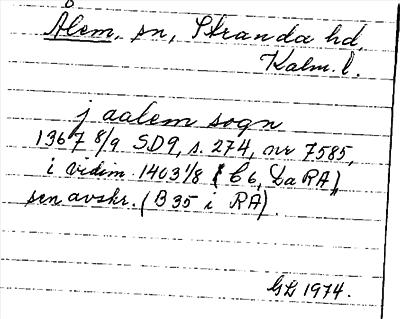 Ålem, sn, Stranda hd,
Kalm. l.
j aalem sogn
1367 8/9 SD9, s. 274, nr 7585,
i vidim. 1403 1/8 (C6, Da RA),
sen avskr. (B 35 i RA).
GL 1974.